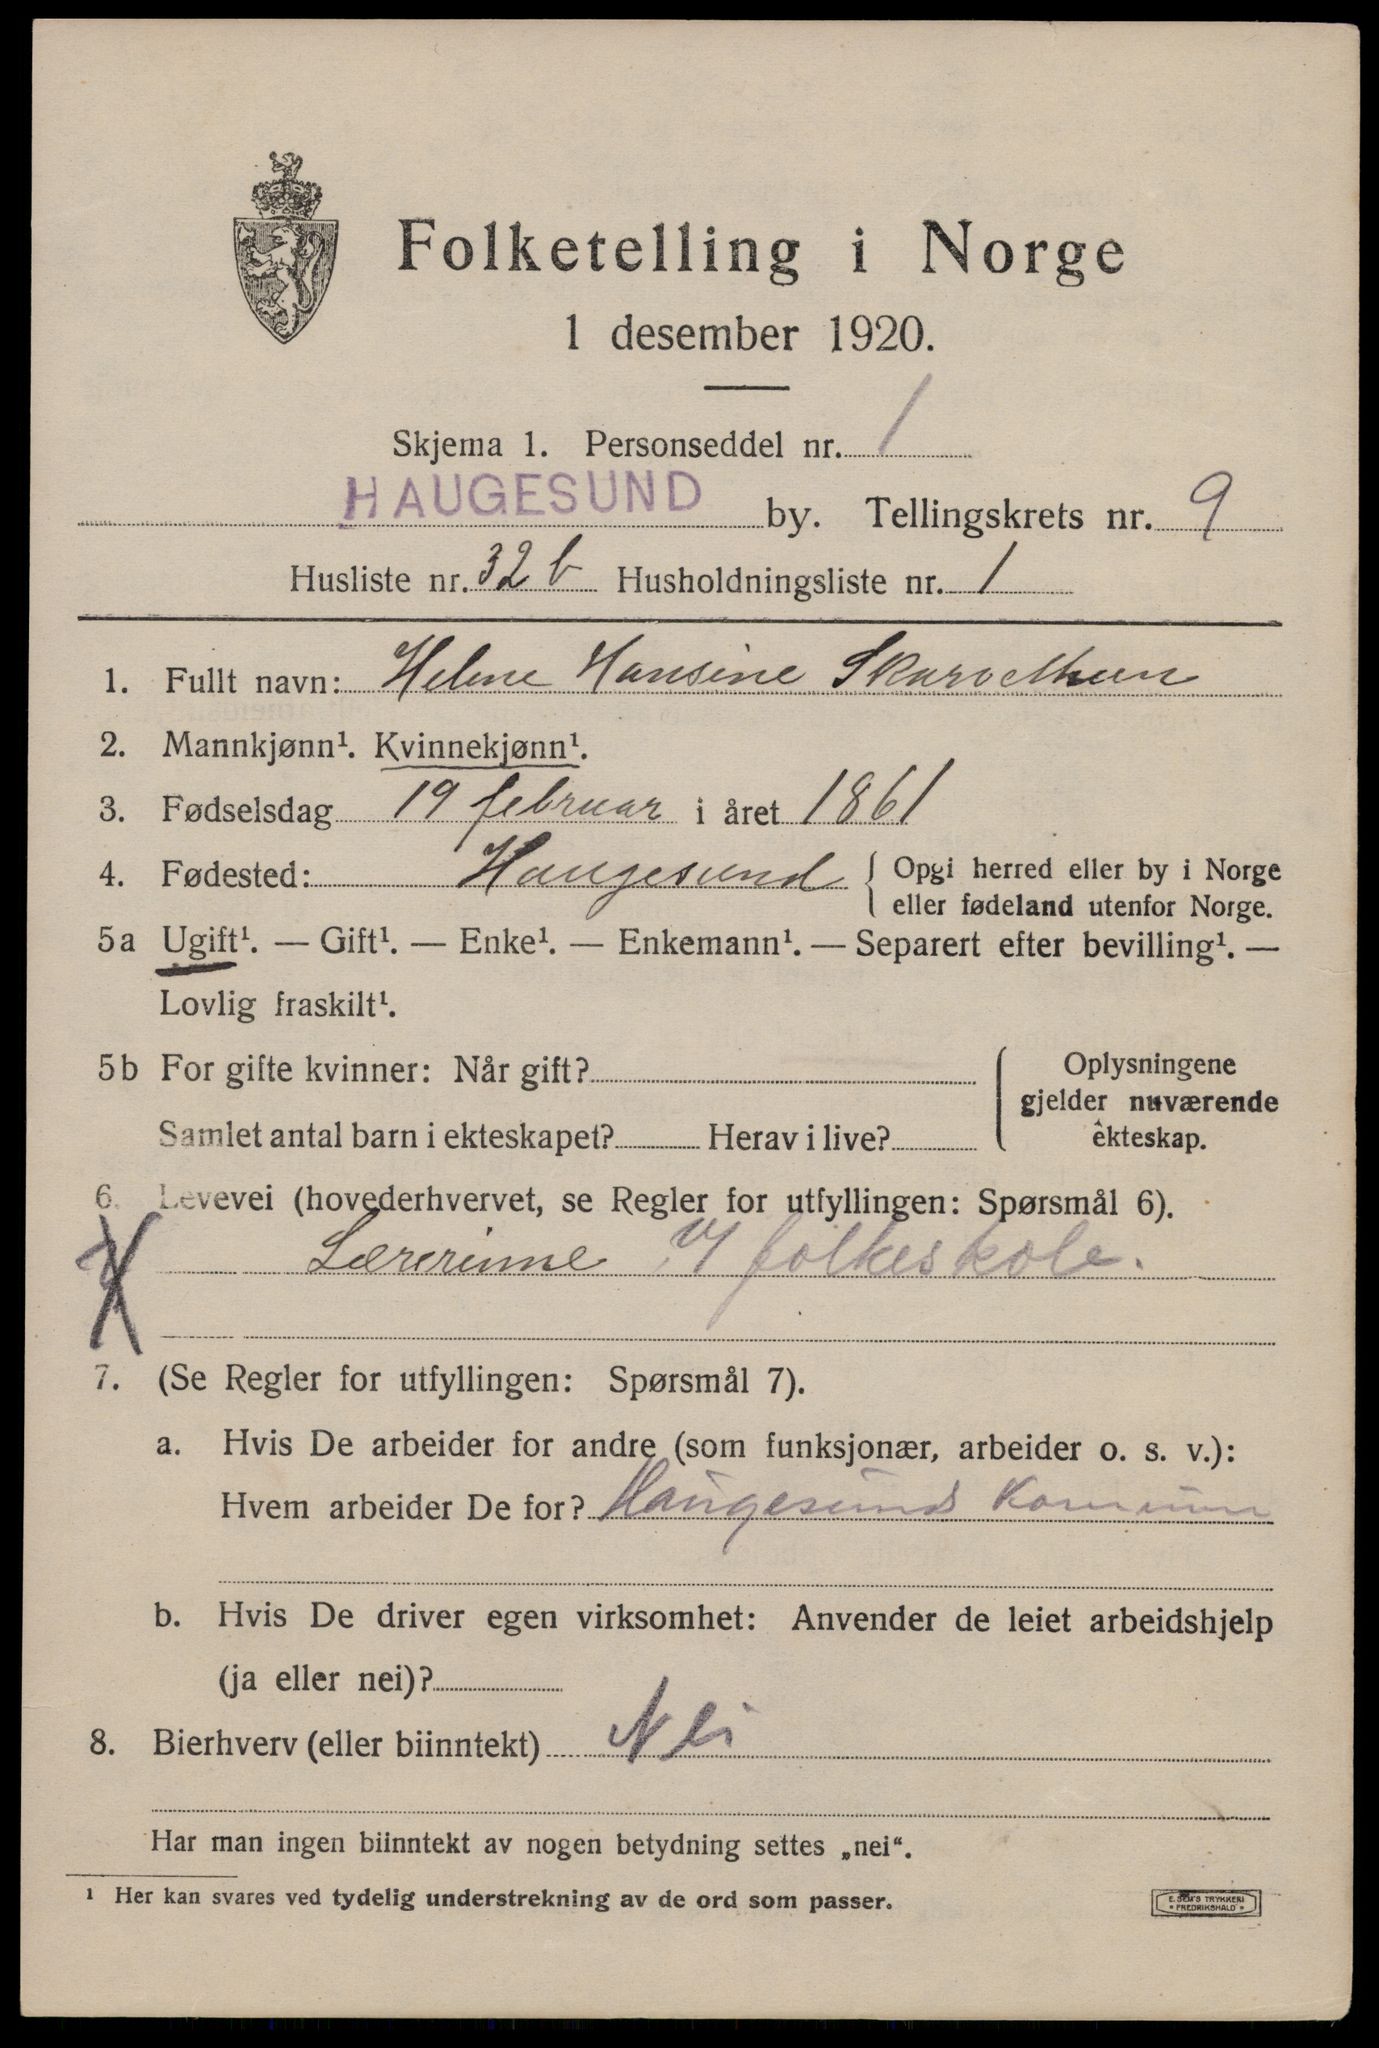 Folketelling i Norge
1 desember 1920.
Skjema 1. Personseddel nr. 1
HAUGESUND by. Tellingskrets nr. 9
Husliste nr. 32 b Husholdningsliste nr. 1
1. Fullt navn: Helene Hansine
2. Mannkjønn¹. Kvinnekjønn¹.
3. Fødselsdag 19 februar i året 1861
4. Fødested: Haugesund { Opgi herred eller by i Norge
eller fødeland utenfor Norge.
5a Ugift¹. — Gift¹. — Enke¹. — Enkemann¹. — Separert efter bevilling¹. —
Lovlig fraskilt¹.
5b For gifte kvinner: Når gift?
Samlet antal barn i ekteskapet? Herav i live?
Oplysningene
gjelder nuværende
ekteskap.
6. Levevei (hovederhvervet, se Regler for utfyllingen: Spørsmål 6).
Lærerinne v/ folkeskole.
7. (Se Regler for utfyllingen: Spørsmål 7).
a. Hvis De arbeider for andre (som funksjonær, arbeider o. s. v.):
Hvem arbeider De for? Haugesunds
b. Hvis De driver egen virksomhet: Anvender de leiet arbeidshjelp
(ja eller nei)?
8. Bierhverv (eller biinntekt) Nei
Har man ingen biinntekt av nogen betydning settes „nei“.
¹ Her kan svares ved tydelig understrekning av de ord som passer.
E. SEM'S TRYKKERI
* FREDRIKSHALD *